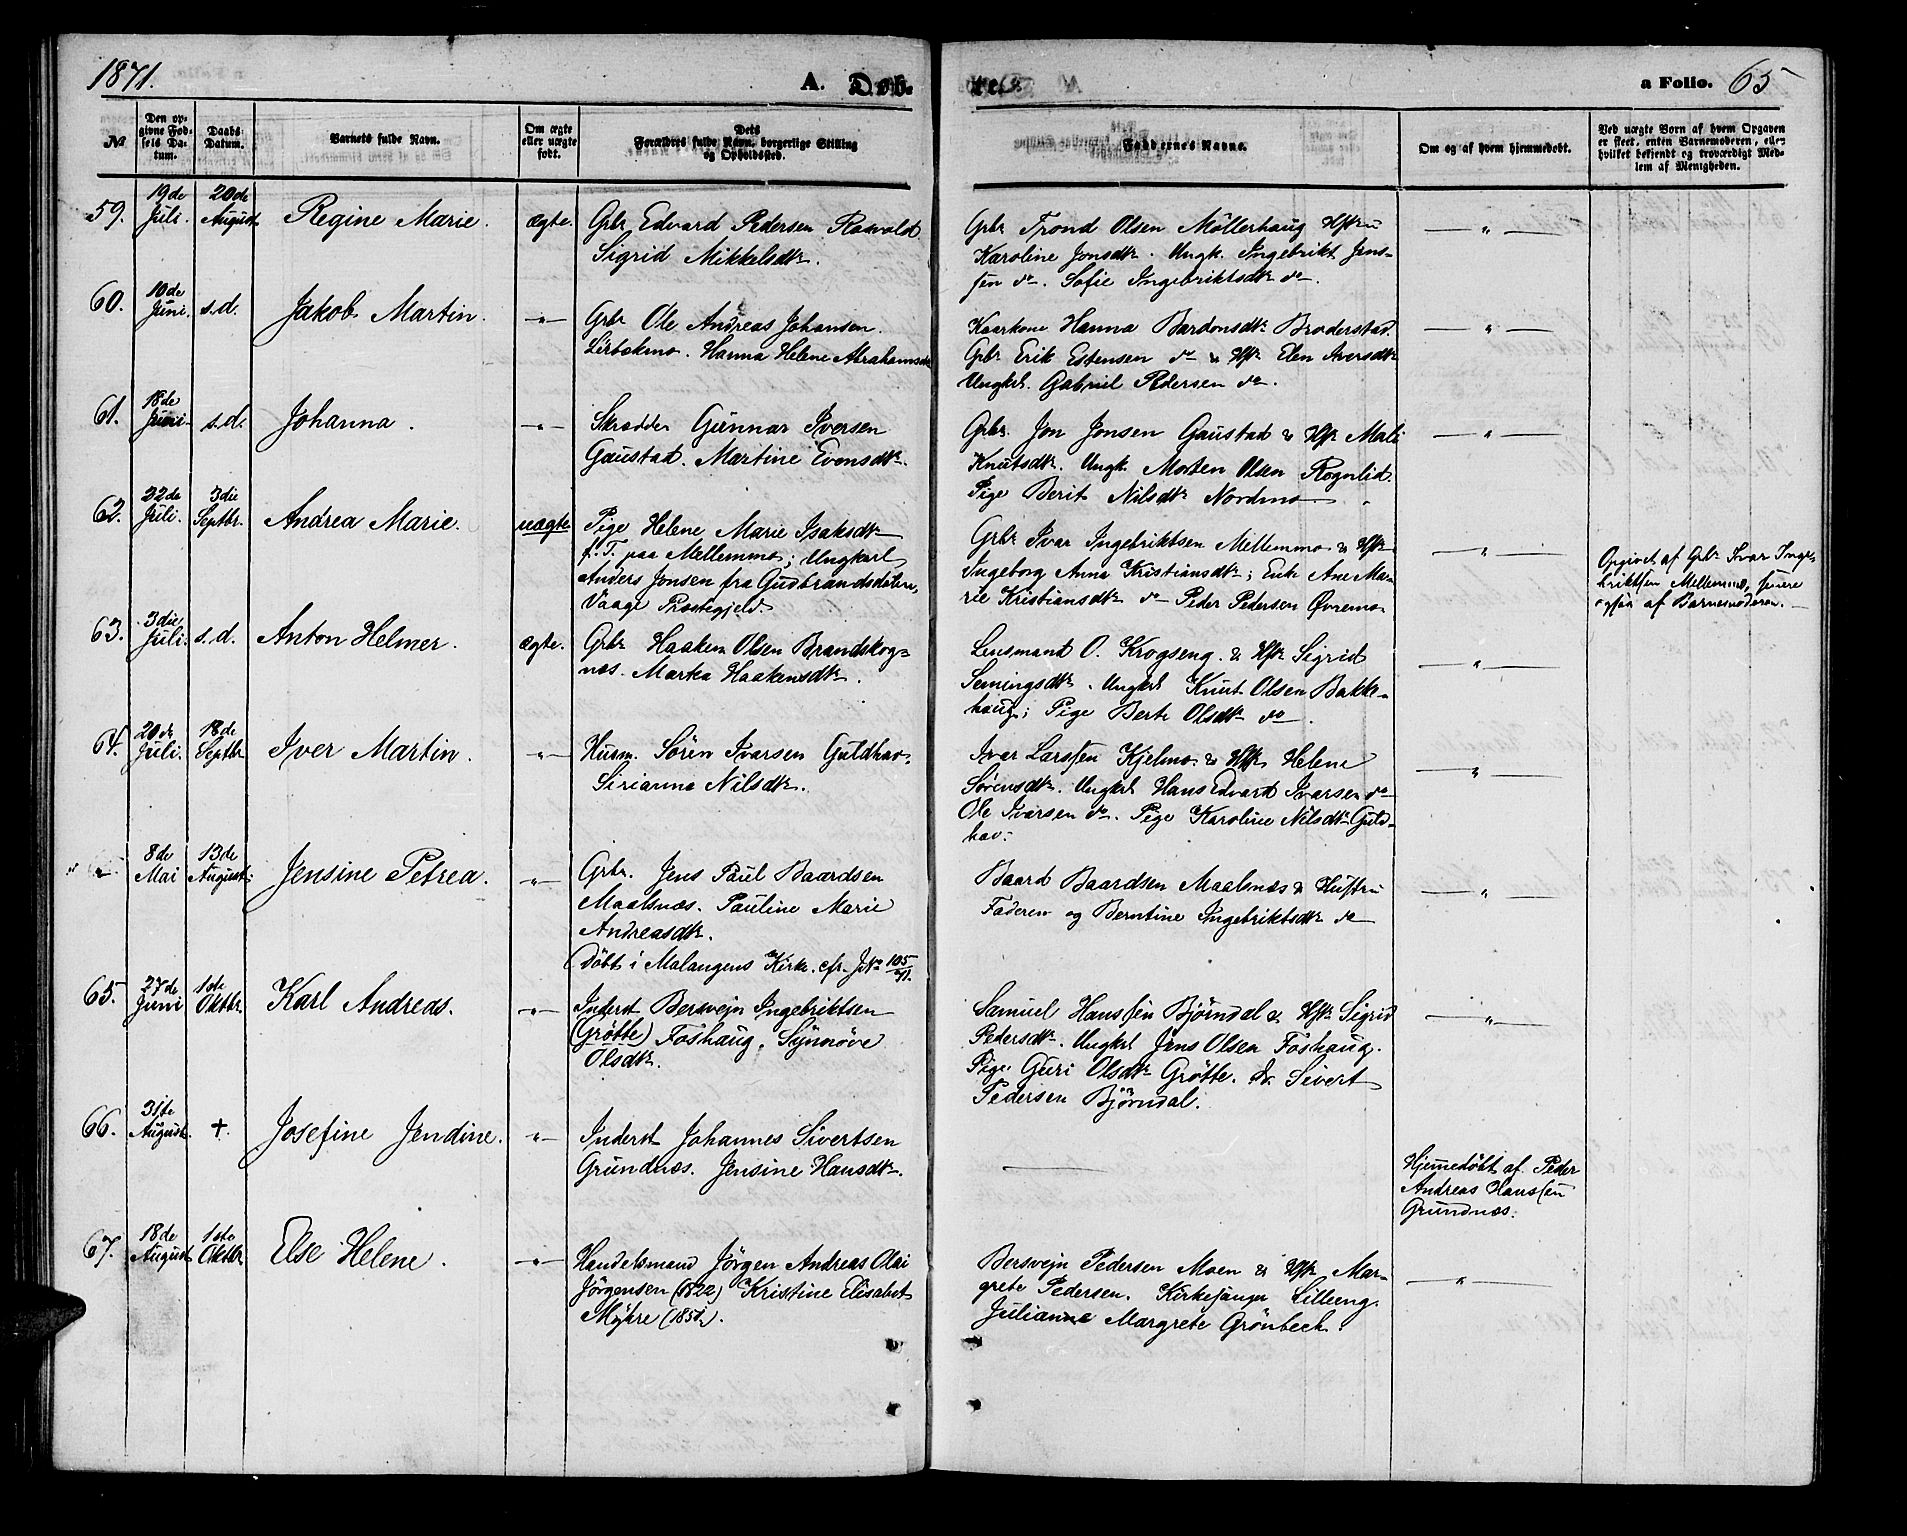 1871.
A. Døb-
te.
a Folio. 65
№
Den op-
givne Fød-
sels Da-
tum.
Daabs-
Datum.
Barnets fulde Navn.
Om ægte
eller uægte
født.
Dets
Forældres fulde Navn, borgerlige Stilling
og Opholdssted.
Faddernes Navne.
Om og af hvem hjemmedøbt.
Ved uægte Børn af hvem Opgaven
er skeet, enten Barnemoderen, eller
hvilket bekjendt og troværdigt Med-
lem af Menigheden.
59.
19de
Juli.
20de
August
Regine Marie.
ægte.
Grbr Edvard Pedersen
Sigrid Mikkelsdtr.
Grbr Trond Olsen Möllerhaug Hstru
Karoline Jonsdtr. Ungk. Ingebrikt Jens-
sen do. Sofie Ingebriktsdtr do.
— " —
60.
10de
Juni.
s.d.
Jakob Martin.
— " —
Grbr Ole Andreas Johansen
Hanna Helene Abrahamsdtr
Kaarkone Hanna Bardonsdtr Broderstad.
Grbr Erik Estensen do & Hstr Elen Aversdtr
Ungkrl. Gabriel Pedersen do.
— " —
61.
18de
Juni.
s.d.
Johanna.
— " —
Skrædder Gunnar Iversen
Gaustad. Martine Evensdtr.
Grbr. Jon Jonsen Gaustad & Hstr Mali
Knutsdtr. Ungk. Morten Olsen Rognlid.
Pige Berit Nilsdtr Nordmo
— " —
62.
22de
Juli.
3die
Septbr.
Andrea Marie.
uægte
Pige Helene Marie Isaksdtr
f. T. paa Mellemmo; Ungkarl
Anders Jonsen fra Gudbrandsdalen,
Vaage Præstegjeld.
Grbr Ivar Ingebriktsen Mellemmo & Hstr
Ingeborg Anna Kristiansdtr; Enke Ane Ma-
rie Kristiansdtr do Peder Pedersen Øvremo.
— " —
Opgivet af Grbr Ivar Inge-
briktsen Mellemmo, senere
ogsaa af Barnemoderen.
63.
3die
Juli.
s.d.
Anton Helmer.
ægte.
Grbr Haaken Olsen Brandskog-
nes. Marta Haakensdtr.
Lensmand O. Krogseng. & Hstr Sigrid
Semingsdtr. Ungkrl Knut Olsen Bakke-
haug; Pige Berte Olsdtr do.
— " —
64.
20de
Juli.
18de
Septbr
Iver Martin.
— " —
Husm. Sören Ivarsen Guldhav.
Sirianna Nilsdtr.
Ivar Larssen Kjelmo. & Hstr Helene
Sørensdtr. Ungkrl Hans Edvard Ivarsen do
Ole Ivarsen do. Pige Karoline Nilsdtr Guld-
hav.
— " —
8de
Mai
13de
August.
Jensine Petrea.
— " —
Grbr. Jens Paul Baardsen
Maalsnæs. Pauline Marie
Andreasdtr.
(Döbt i Malangens Kirke. cfr. J No 105/71.
Baard Baardsen Maalsnæs & Hustru
Faderen og Berntine Ingebriktsdtr do
— " —
65.
27de
Juni
1ste
Oktbr.
Karl Andreas.
— " —
Inderst Bersvejn Ingebriktsen
(Grötte) Foshaug. Synnöve
Olsdtr.
Samuel Hanssen Björndal & Hstr Sigrid
Pedersdtr. Ungkrl Jens Olsen Foshaug.
Pige Guri Olsdtr Grötte. Sivert
Pedersen Björndal.
— " —
66.
31te
August.
+.
Josefine Jendine.
— " —
Inderst Johannes Sivertsen
Grundnæs. Jensine Hansdtr.
Hjemmedöbt af Peder
Andreas Hanssen
Grundnæs.
67.
18de
August
1ste
Oktbr.
Else Helene.
— " —
Handelsmand Jörgen Andreas Olai
Jörgensen (1822) Kristine Elisabet
Myhre (1851).
Bersvejn Pedersen Moen & Hstr Mar-
grete Pedersen. Kirkesanger Lilleeng.
Julianna Margrete Grönbech.
— " —